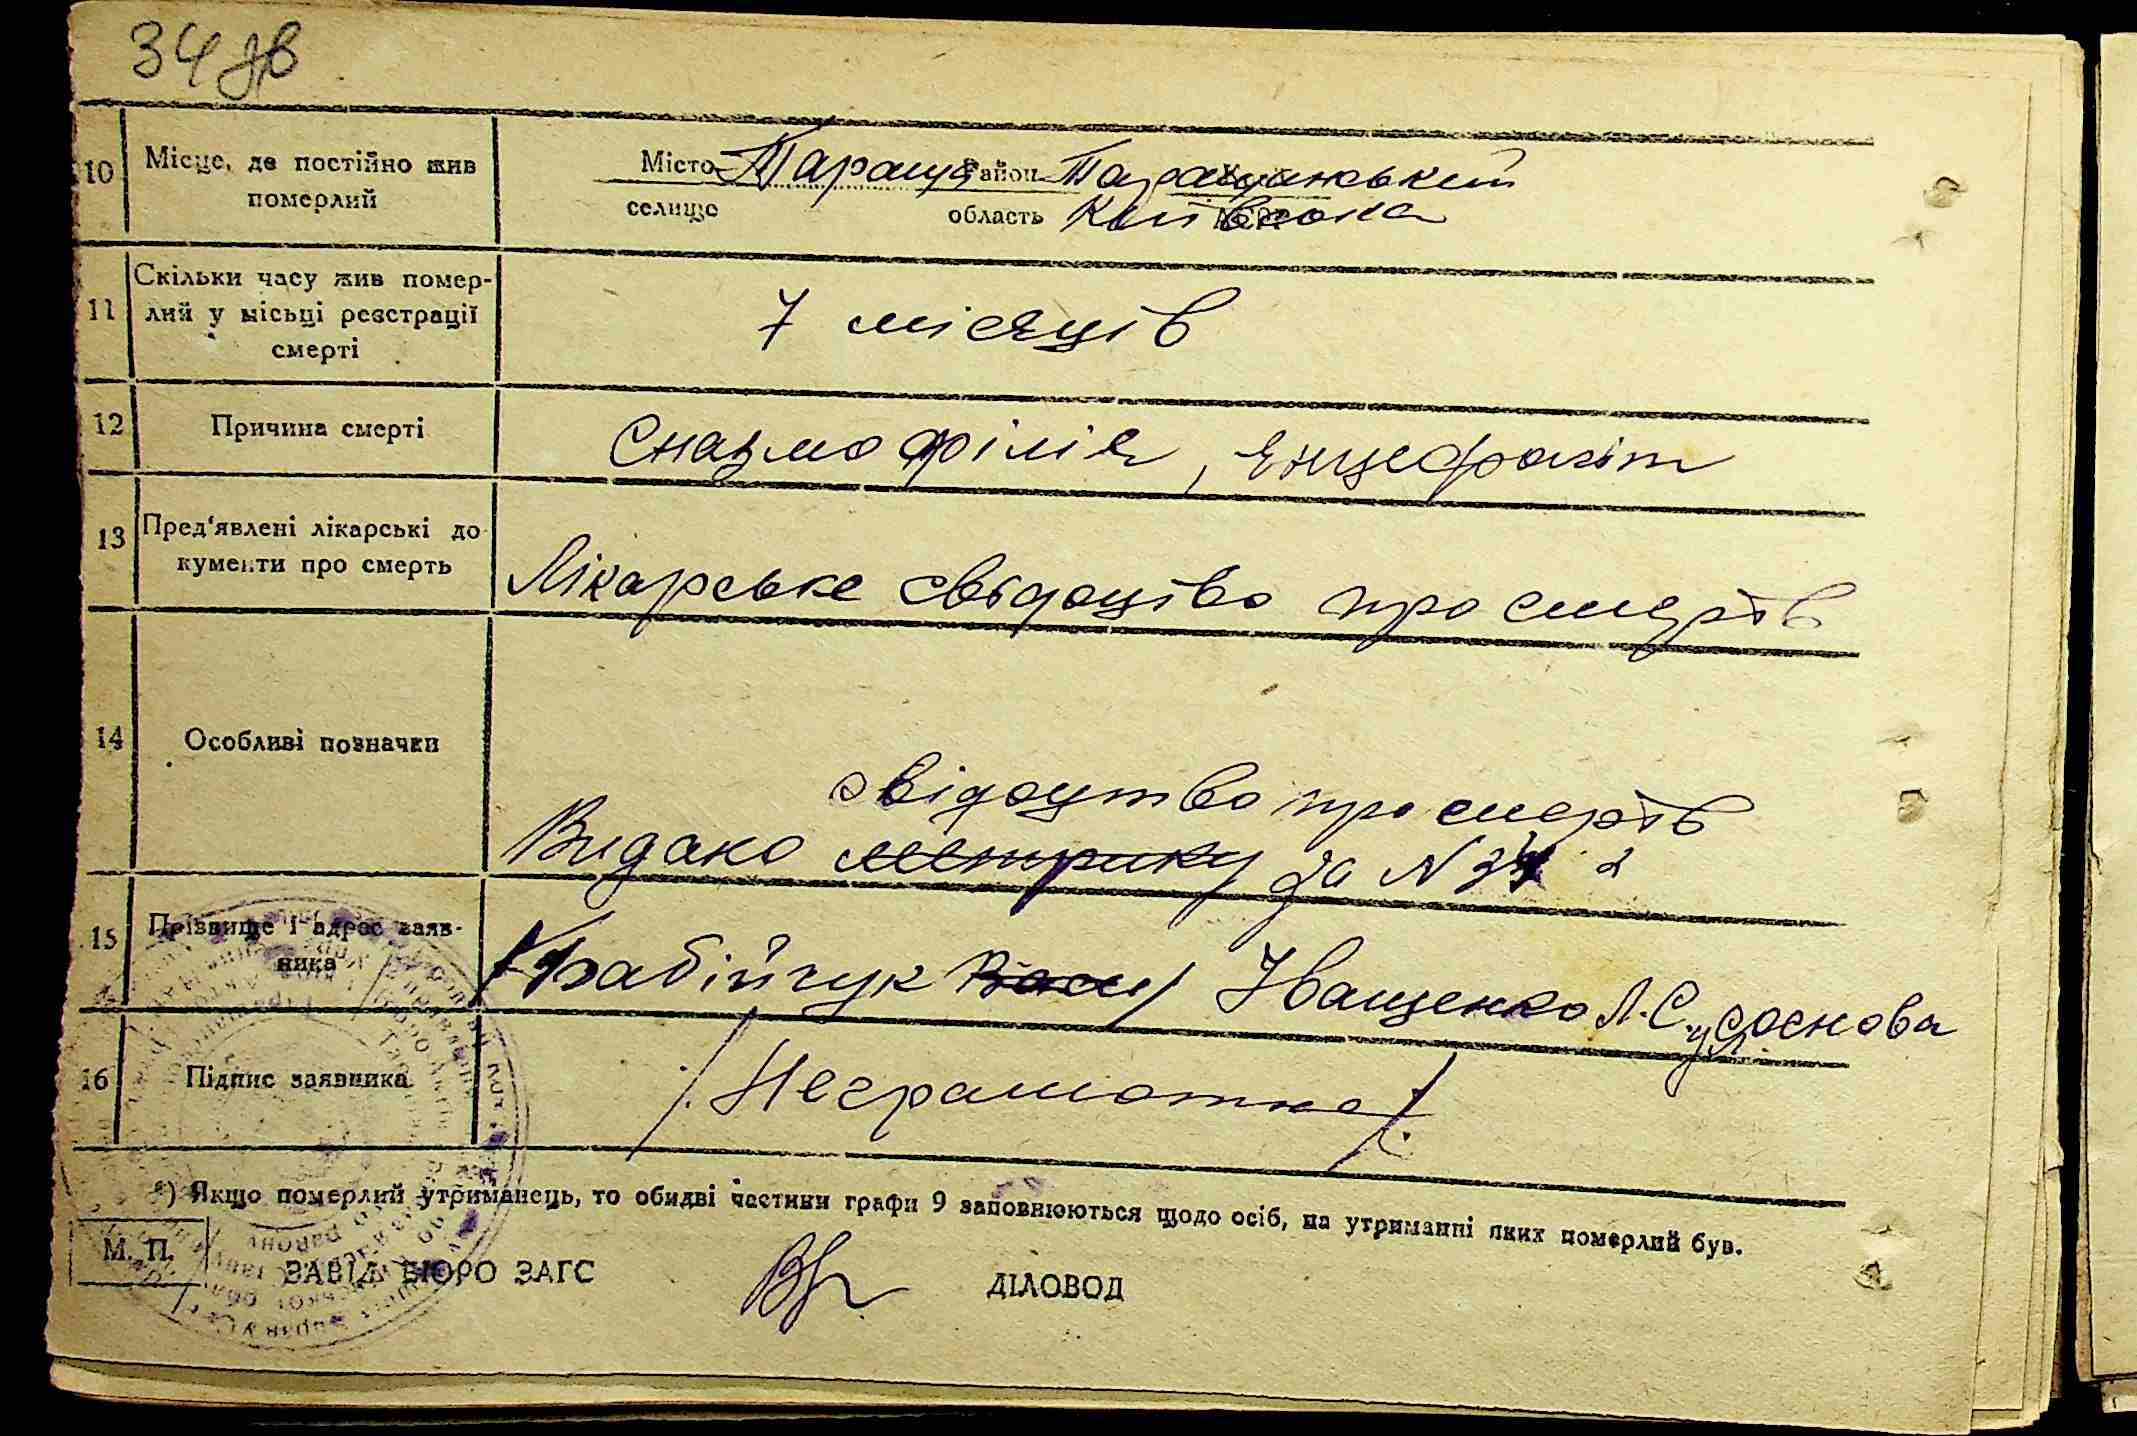 34 зв
10 Місце, де постійно жив померлий
Місто Тараща район Таращанський
селище область Київська
11 Скільки часу жив помер-
лий у місьці реєстрації
смерті
7 місяців
12 Причина смерті
Спазмофілія, Енцефаліт
13 Пред'явлені лікарські до
кументи про смерть
Лікарське свідоцтво про смерть
14 Особливі позначки
свідоцтво про смерть
Видано метрику за N 34
15 Прізвище і адрес заяв-
ника
Бабійчук Іващенко Л.С. Соснова
16 Підпис заявника
/Неграмотна/
*) Якщо померлий утриманець, то обидві частини графи 9 заповнюються щодо осіб, на утриманні яких померлий був.
М. П.
ЗАВІД. БЮРО ЗАГС ДІЛОВОД